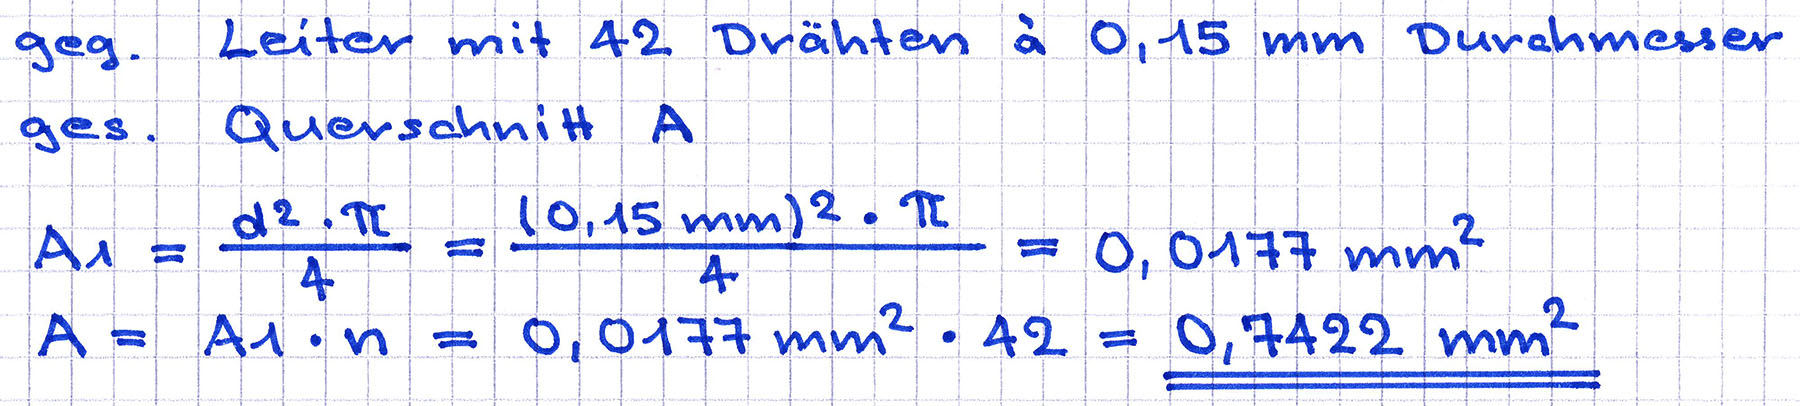 geg. Leiter mit 42 Drähten à 0,15 mm Durchmesser
ges. Querschnitt A
A1 = d² · π / 4 = (0,15 mm)² · π / 4 = 0,0177 mm²
A = A1 · n = 0,0177 mm² · 42 = 0,7422 mm²